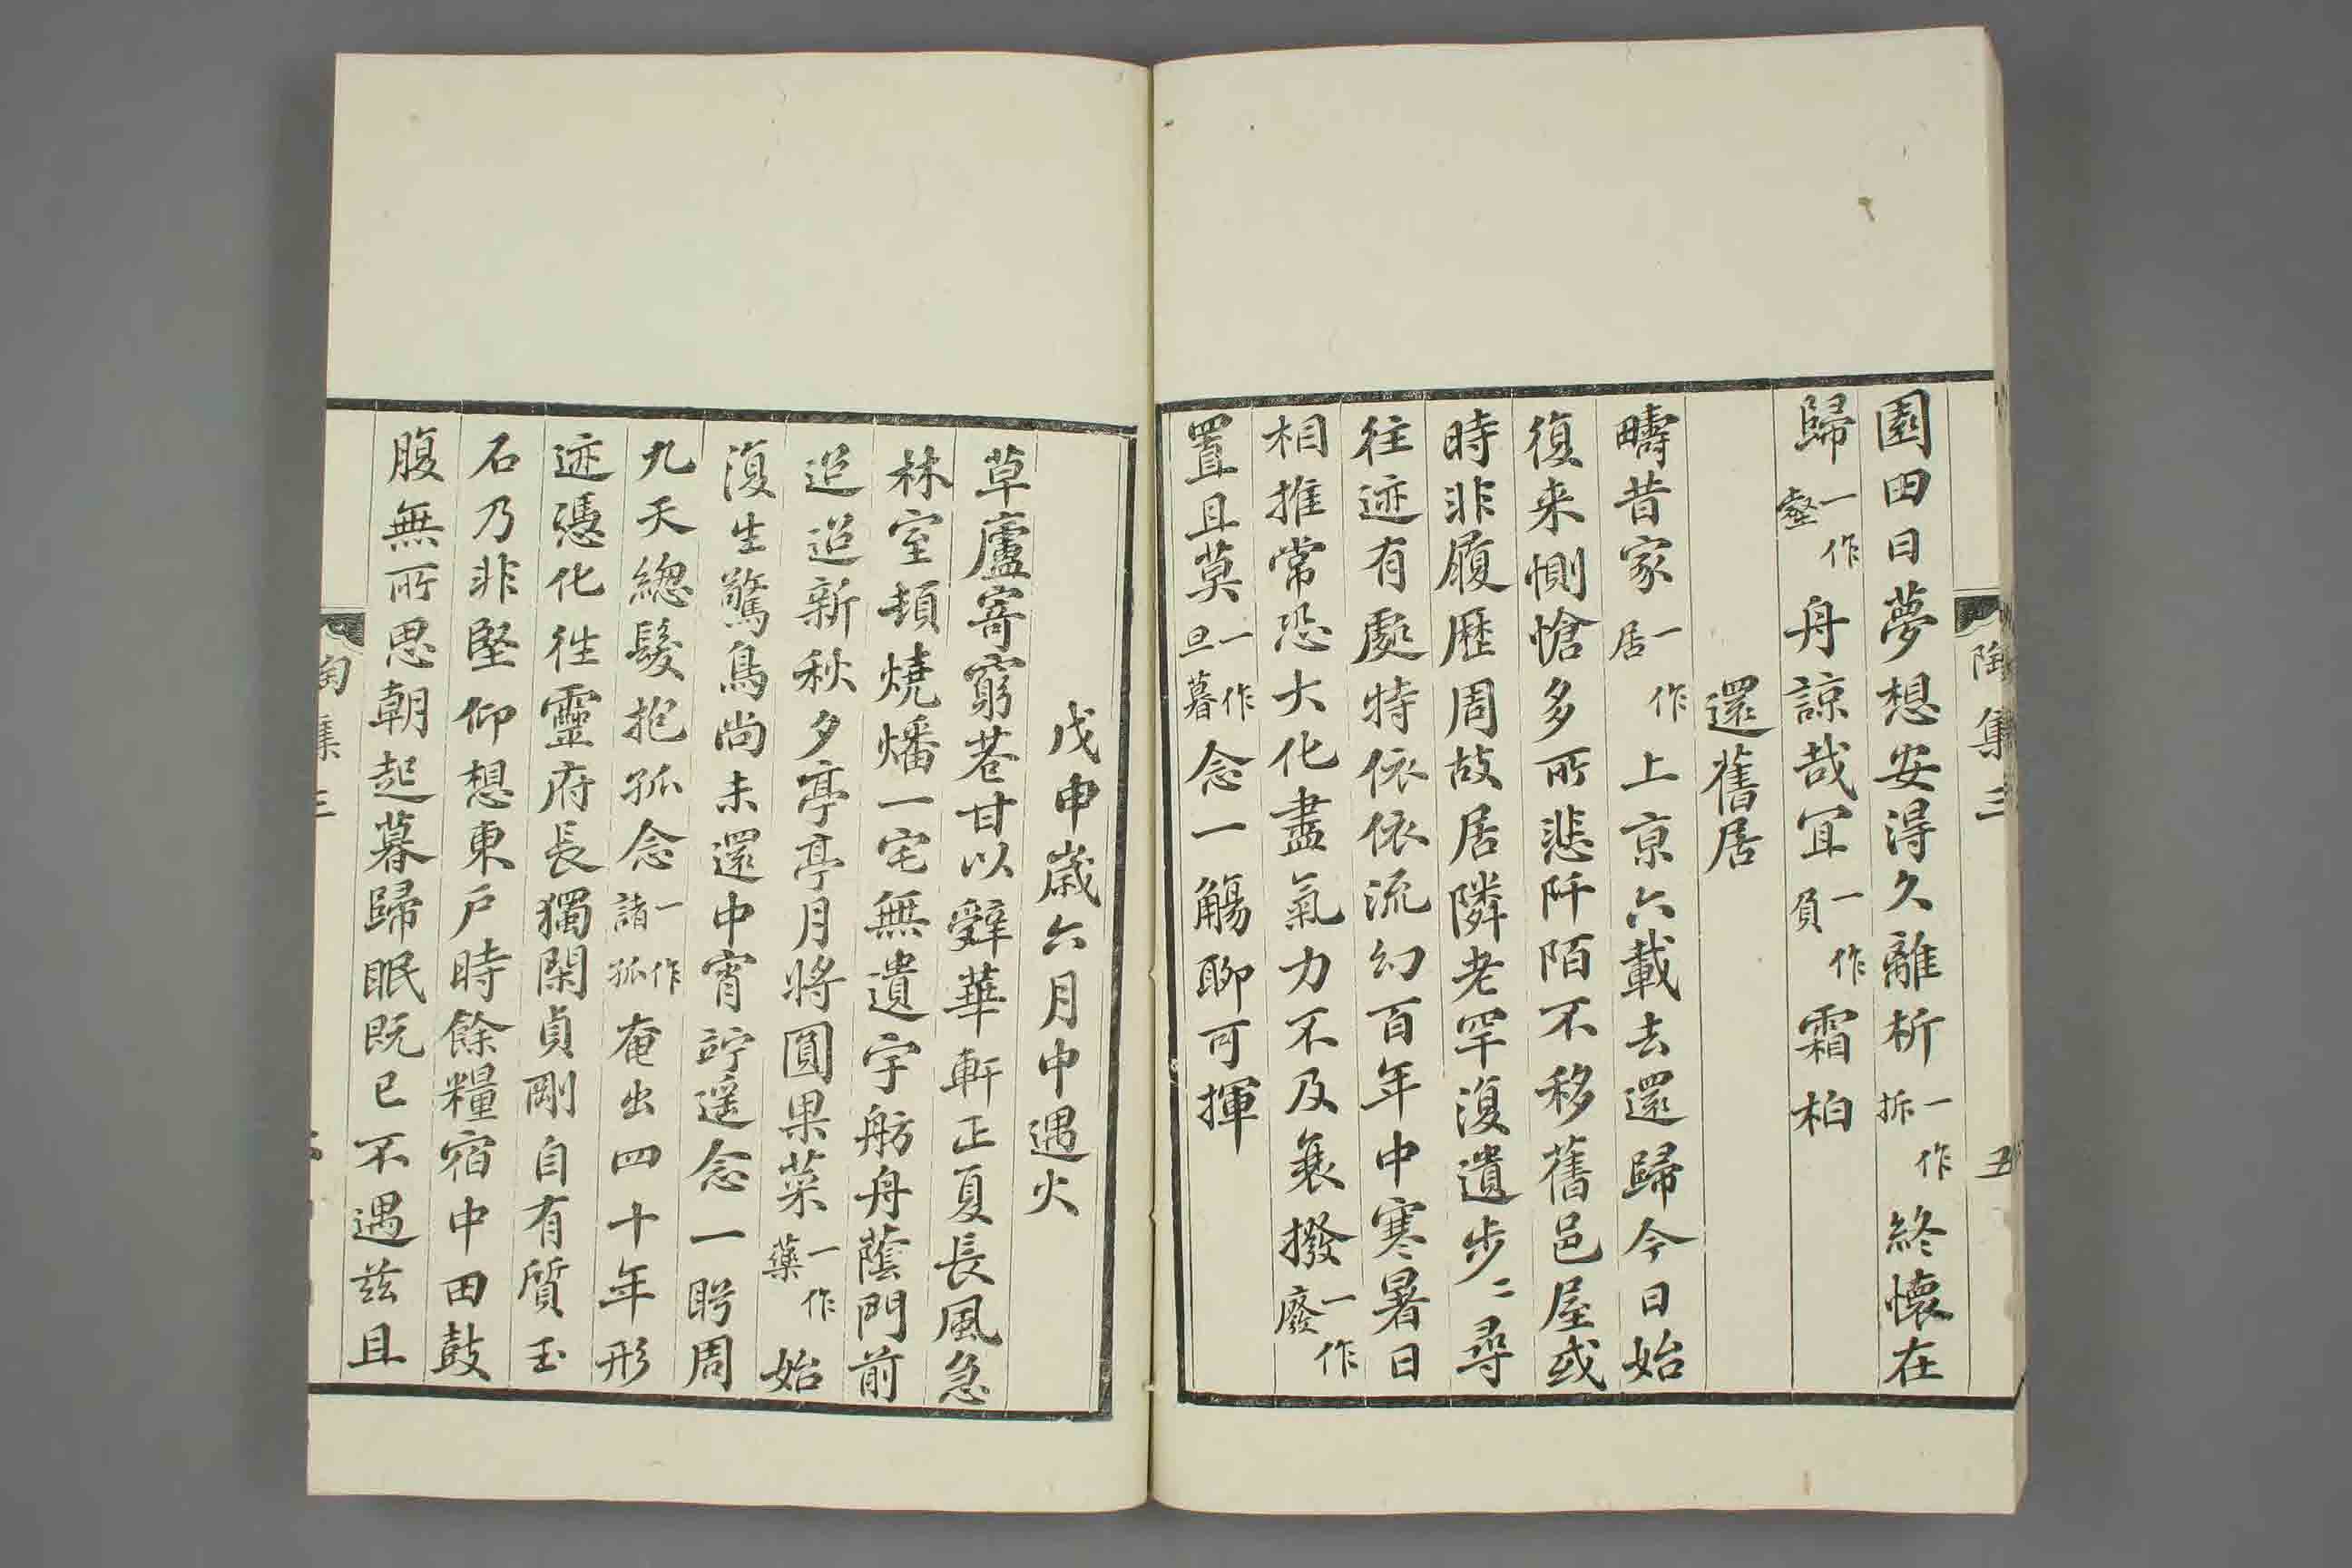 陶集三 五
園田日夢想安得久離析一作拆終懷在
歸一作壑舟諒哉冝一作負霜柏
還舊居
疇昔家一作居上京六載去還歸今日始
復来惻愴多所悲阡陌不移舊邑屋或
時非履歷周故居隣老罕復遺步〻尋
往迹有處特依依流幻百年中寒暑日
相推常恐大化盡氣力不及衰撥一作廢
置且莫一作旦暮念一觴聊可揮
戊申歲六月中遇火
草廬寄窮巷甘以辤華軒正夏長風急
林室頓燒燔一宅無遺宇舫舟蔭門前
迢迢新秋夕亭亭月將圓果菜一作藥始
復生驚鳥尚未還中宵竚遥念一盻周
九天總髮抱孤念一作諸孤奄出四十年形
迹憑化往靈府長獨閑貞剛自有質玉
石乃非堅仰想東戶時餘糧宿中田鼓
腹無所思朝起暮歸眠既已不遇兹且
陶集三